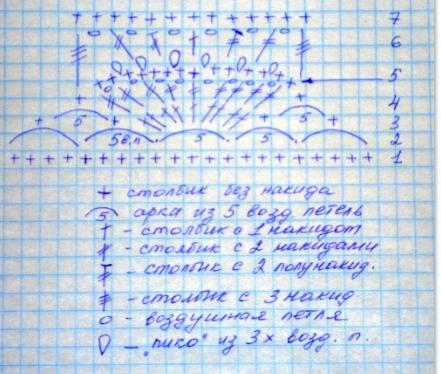 7
6
5
4
5 5 3
5в.п. 5 5 2
1
+ столбик без накида
5 арка из 5 возд петель
† - столбик с 1 накидом
- столбик с 2 накидами
- столбик с 2 полунакид.
- столбик с 3 накид
о - воздушная петля
- "пико" из 3х возд. п.